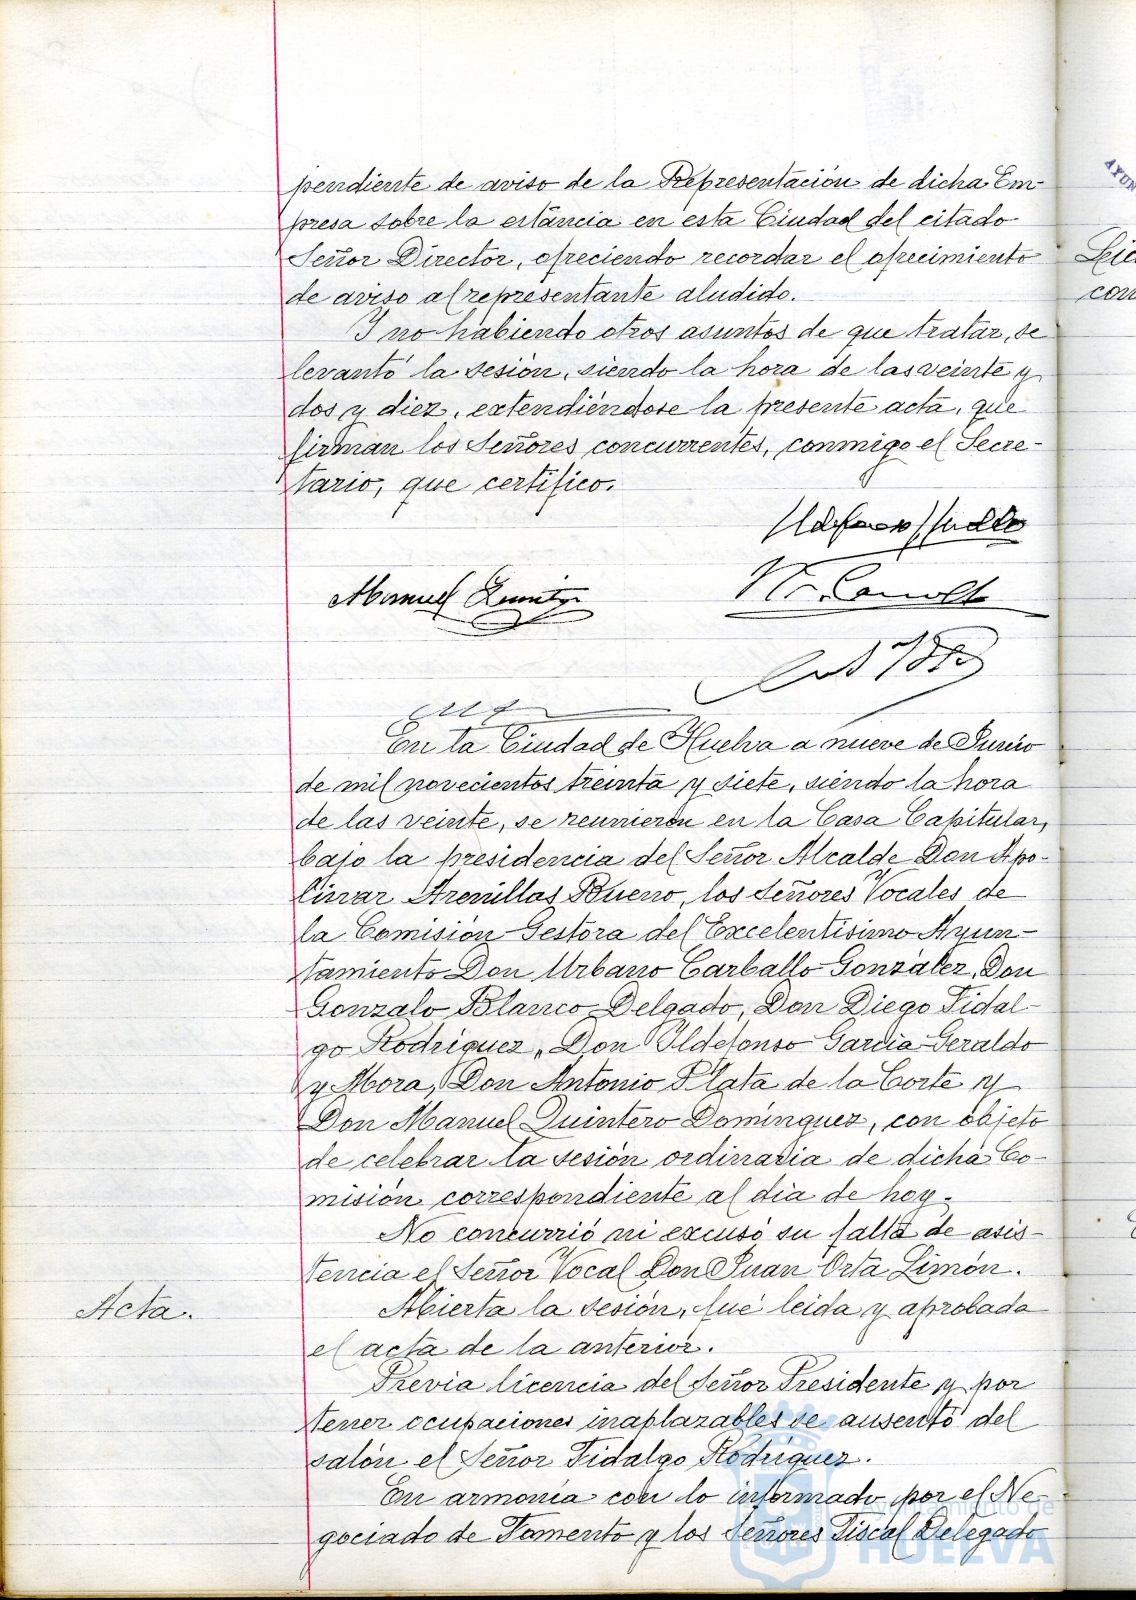 pendiente de aviso de la Representación de dicha Em-
presa sobre la estancia en esta Ciudad del citado
Señor Director, ofreciendo recordar el ofrecimiento
de aviso al representante aludido.
Y no habiendo otros asuntos de que tratar, se
levantó la sesión, siendo la hora de las veinte y
dos y diez, extendiéndose la presente acta, que
firman los Señores concurrentes, conmigo el Secre-
tario, que certifico.
Manuel Quintero
En la Ciudad de Huelva a nueve de Junio
de mil novecientos treinta y siete, siendo la hora
de las veinte, se reunieron en la Casa Capitular,
bajo la presidencia del Señor Alcalde Don Apo-
linar Arenillas Bueno, los Señores Vocales de
la Comisión Gestora del Excelentísimo Ayun-
tamiento Don Urbano Carballo González, Don
Gonzalo Blanco Delgado, Don Diego Fidal-
go Rodríguez, Don Ildefonso García Geraldo
y Mora, Don Antonio Plata de la Corte y
Don Manuel Quintero Domínguez, con objeto
de celebrar la sesión ordinaria de dicha Co-
misión correspondiente al día de hoy.
No concurrió ni excusó su falta de asis-
tencia el Señor Vocal Don Juan Orta Limón.
Acta.
Abierta la sesión, fué leida y aprobada
el acta de la anterior.
Previa licencia del Señor Presidente y por
tener ocupaciones inaplazables se ausentó del
salón el Señor Fidalgo Rodríguez.
En armonía con lo informado por el Ne-
gociado de Fomento y los Señores Fiscal Delegado
Ayuntamiento de
HUELVA